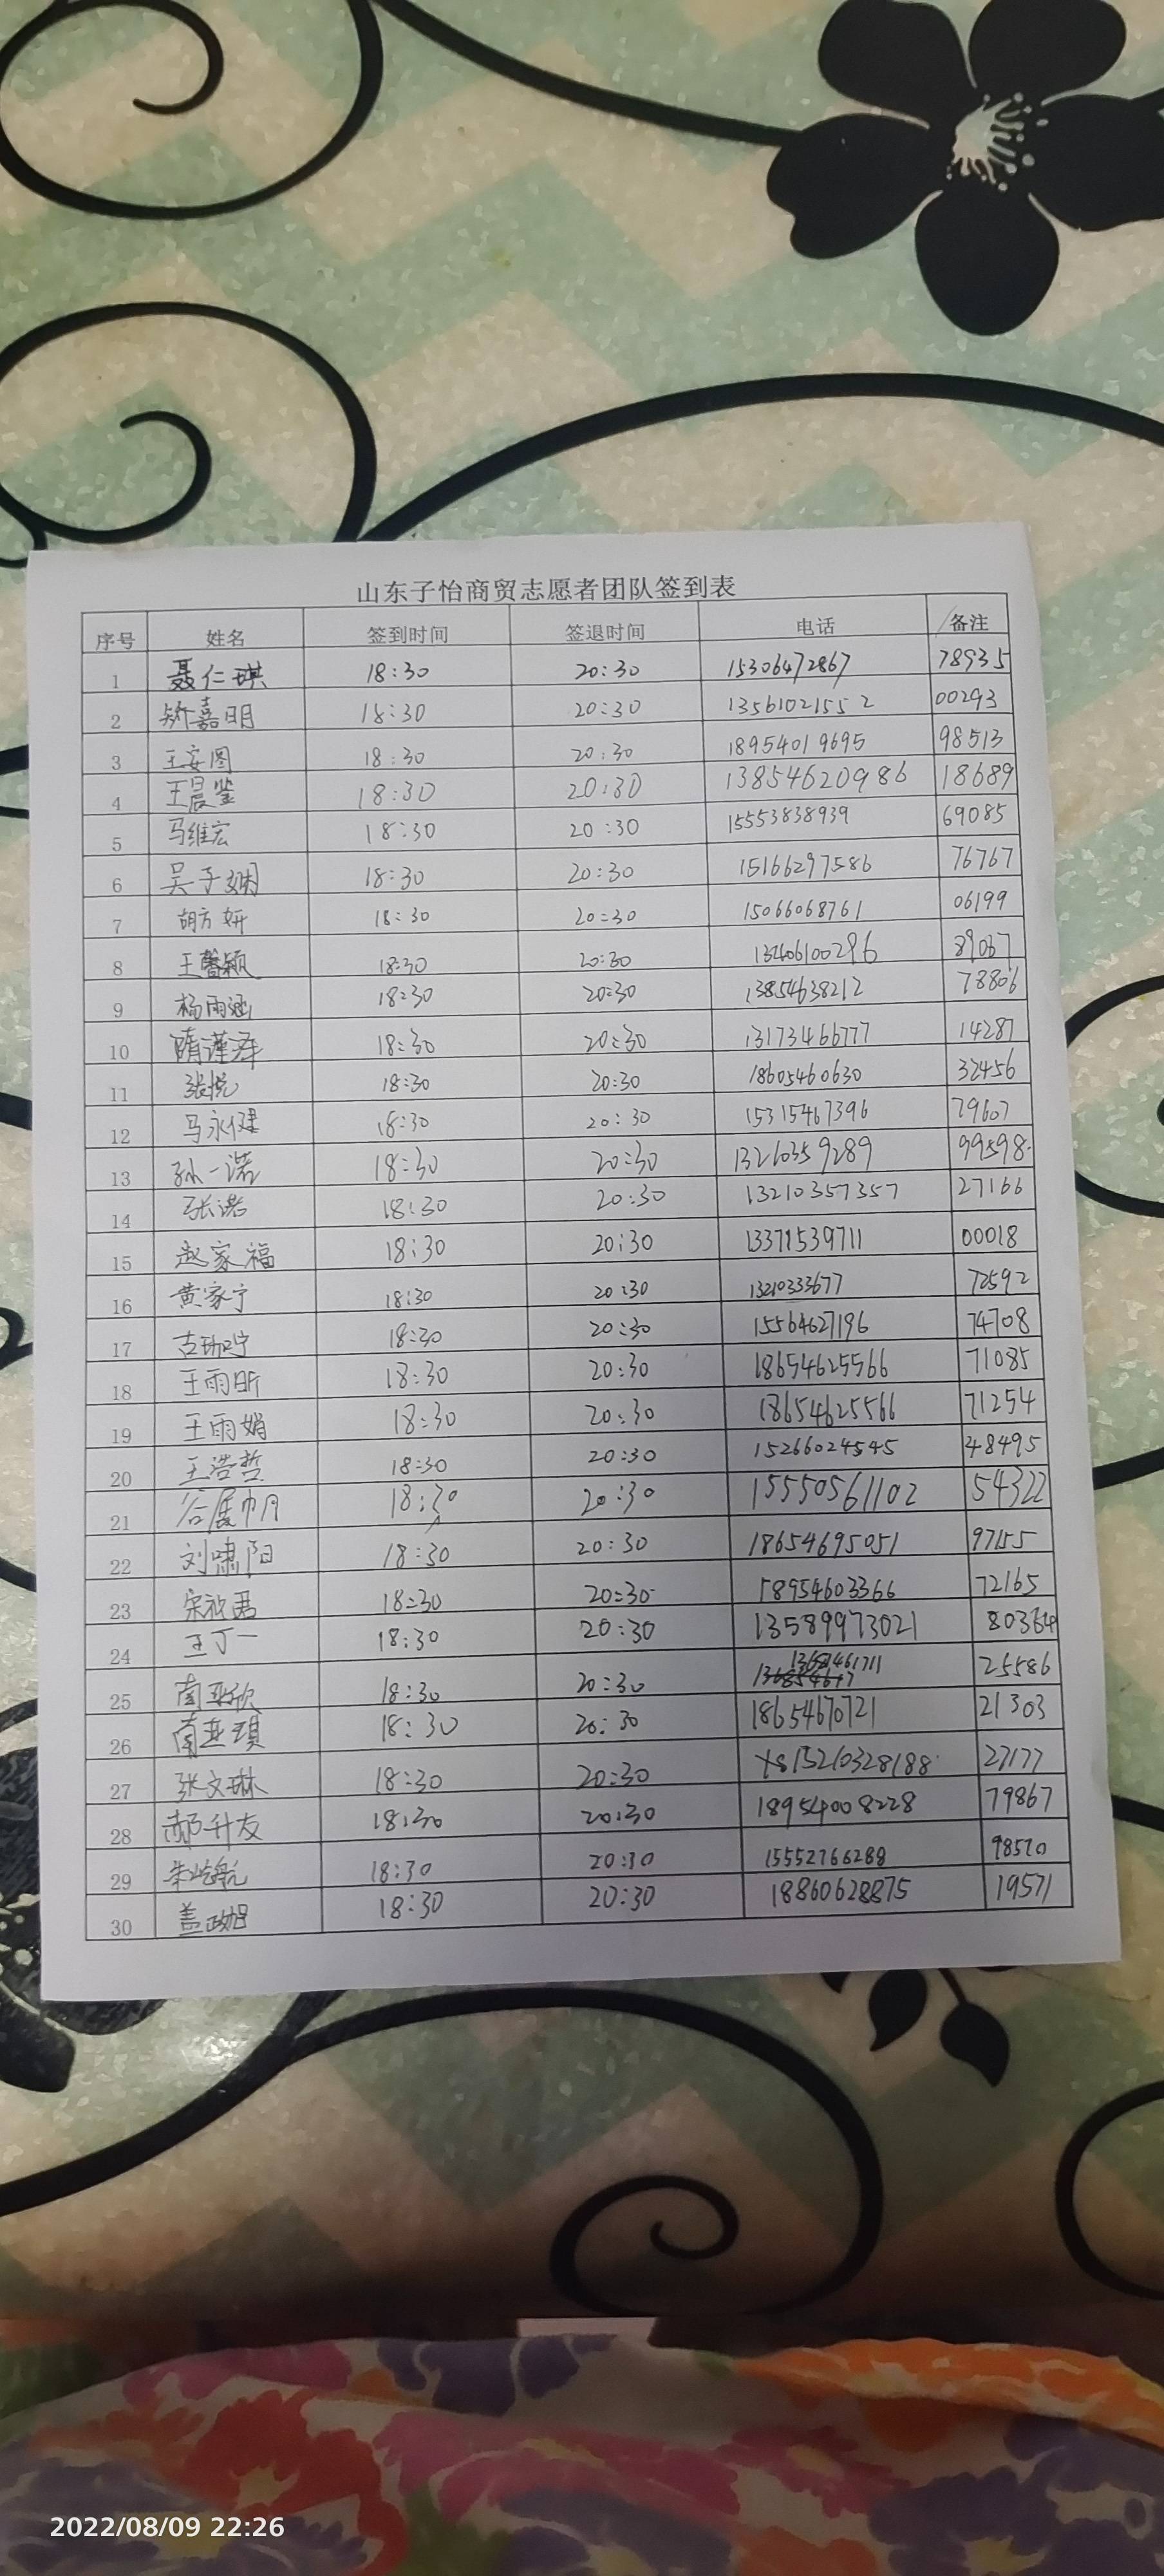 山东子怡商贸志愿者团队签到表
序号 姓名 签到时间 签退时间 电话 备注
1 聂仁琪 18:30 20:30 15306472867 78935
2 矫嘉明 18:30 20:30 13561021552 00293
3 王安图 18:30 20:30 18954019695 98513
4 王晨鉴 18:30 20:30 13854620986 18689
5 马维宏 18:30 20:30 15553838939 69085
6 吴予娴 18:30 20:30 15166297586 76767
7 胡方妍 18:30 20:30 15066068761 06199
8 王馨颖 18:30 20:30 89067
9 杨雨涵 18:30 20:30 13854638212 78806
10 隋谨泽 18:30 20:30 13173466777 14287
11 张悦 18:30 20:30 18605460630 32456
12 马永健 18:30 20:30 15315467396 79607
13 孙一诺 18:30 20:30 13210359289 99598
14 张诺 18:30 20:30 13210357357 27166
15 赵家福 18:30 20:30 13371539711 00018
16 黄家宁 18:30 20:30 13210333677 72592
17 18:30 20:30 15564627196 74708
18 王雨昕 18:30 20:30 18654625566 71085
19 王雨娟 18:30 20:30 18654625566 71254
20 王浩哲 18:30 20:30 15266024545 48495
21 18:30 20:30 15550561102 54322
22 刘啸阳 18:30 20:30 18654695051 97155
23 18:30 20:30 18954603366 72165
24 王丁一 18:30 20:30 13589973021 80364
25 南亚欣 18:30 20:30 25586
26 南亚琪 18:30 20:30 18654670721 21303
27 张文琳 18:30 20:30 15210328188 27177
28 郝升友 18:30 20:30 18954008228 79867
29 朱屹航 18:30 20:30 15552766288 98520
30 盖政旭 18:30 20:30 18860628875 19571
2022/08/09 22:26